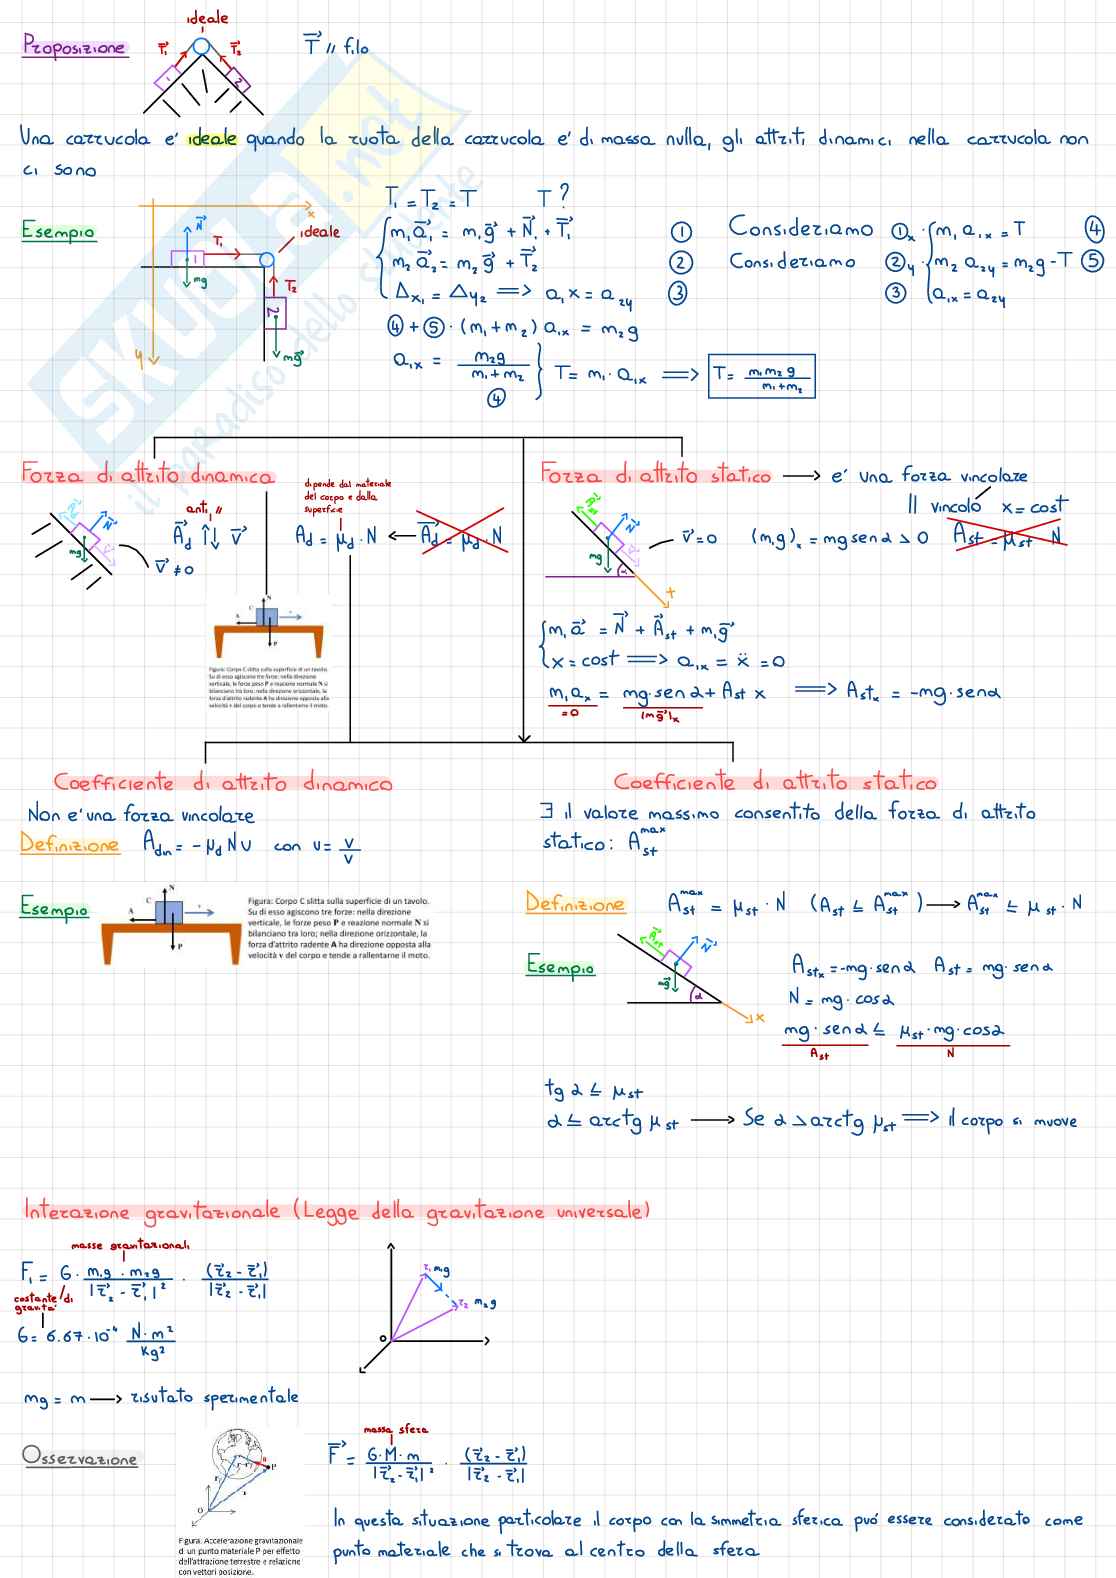 ideale
Proposizione
T⃗₁ T⃗₂
1 2
T⃗ // filo
Una carrucola e' ideale quando la ruota della carrucola e' di massa nulla, gli attriti dinamici nella carrucola non
ci sono
Esempio
x
y
N⃗
T₁
ideale
1
mg
T₂
2
mg⃗
T₁ = T₂ = T T?
m₁a⃗₁ = m₁g⃗ + N⃗₁ + T⃗₁ ①
m₂a⃗₂ = m₂g⃗ + T⃗₂ ②
Δx₁ = Δy₂ ⟹ a₁x = a₂y ③
④+⑤ · (m₁+m₂) a₁x = m₂g
a₁x = m₂g / (m₁+m₂) } T = m₁·a₁x ⟹ T = m₁m₂g / (m₁+m₂)
④
Consideriamo ①x · m₁a₁x = T ④
Consideriamo ②y · m₂a₂y = m₂g - T ⑤
③ a₁x = a₂y
Forza di attrito dinamica
N⃗
mg
v⃗
v⃗ ≠ 0
anti //
A⃗d ↑↓ v⃗
dipende dal materiale
del corpo e dalla
superficie
Ad = μd · N ← A⃗d = μd · N
C N A v P
Figura: Corpo C slitta sulla superficie di un tavolo.
Su di esso agiscono tre forze: nella direzione
verticale, le forze peso P e reazione normale N si
bilanciano tra loro; nella direzione orizzontale, la
forza d'attrito radente A ha direzione opposta alla
velocità v del corpo e tende a rallentarne il moto.
Forza di attrito statico → e' una forza vincolare
Il vincolo x = cost
N⃗
mg
α
x
v⃗ = 0
(m₁g)x = mg sen α > 0 Ast = μst N
m₁a⃗ = N⃗ + A⃗st + m₁g⃗
x = cost ⟹ a₁x = ẍ = 0
m₁ax = mg·sen α + Ast x ⟹ Astx = -mg·sen α
= 0 (mg⃗)x
Coefficiente di attrito dinamico
Non e' una forza vincolare
Definizione Adin = - μd N u con u = v / v
Esempio
C N A v P
Figura: Corpo C slitta sulla superficie di un tavolo.
Su di esso agiscono tre forze: nella direzione
verticale, le forze peso P e reazione normale N si
bilanciano tra loro; nella direzione orizzontale, la
forza d'attrito radente A ha direzione opposta alla
velocità v del corpo e tende a rallentarne il moto.
Coefficiente di attrito statico
∃ il valore massimo consentito della forza di attrito
statico: Astᵐᵃˣ
Definizione Astᵐᵃˣ = μst · N (Ast ≤ Astᵐᵃˣ) → Astᵐᵃˣ ≤ μst · N
Esempio
A⃗st
N⃗
mg⃗
α
x
Astx = -mg·sen α Ast = mg·sen α
N = mg·cos α
mg·sen α ≤ μst·mg·cos α
Ast N
tg α ≤ μst
α ≤ arctg μst → Se α > arctg μst ⟹ il corpo si muove
Interazione gravitazionale (Legge della gravitazione universale)
masse gravitazionali
F₁ = G · m₁g · m₂g / |r⃗₂ - r⃗₁|² · (r⃗₂ - r⃗₁) / |r⃗₂ - r⃗₁|
costante di
gravita'
G = 6.67·10⁻⁴ N·m² / Kg²
r₁ m₁g
r₂ m₂g
O
mg = m → risutato sperimentale
Osservazione
O
P
Figura: Accelerazione gravitazionale
di un punto materiale P per effetto
dell'attrazione terrestre e relazione
con vettori posizione.
massa sfera
F⃗ = G·M·m / |r⃗₂ - r⃗₁|² · (r⃗₂ - r⃗₁) / |r⃗₂ - r⃗₁|
In questa situazione particolare il corpo con la simmetria sferica puo' essere considerato come
punto materiale che si trova al centro della sfera
SKUOLA.not
il paradiso dello studente